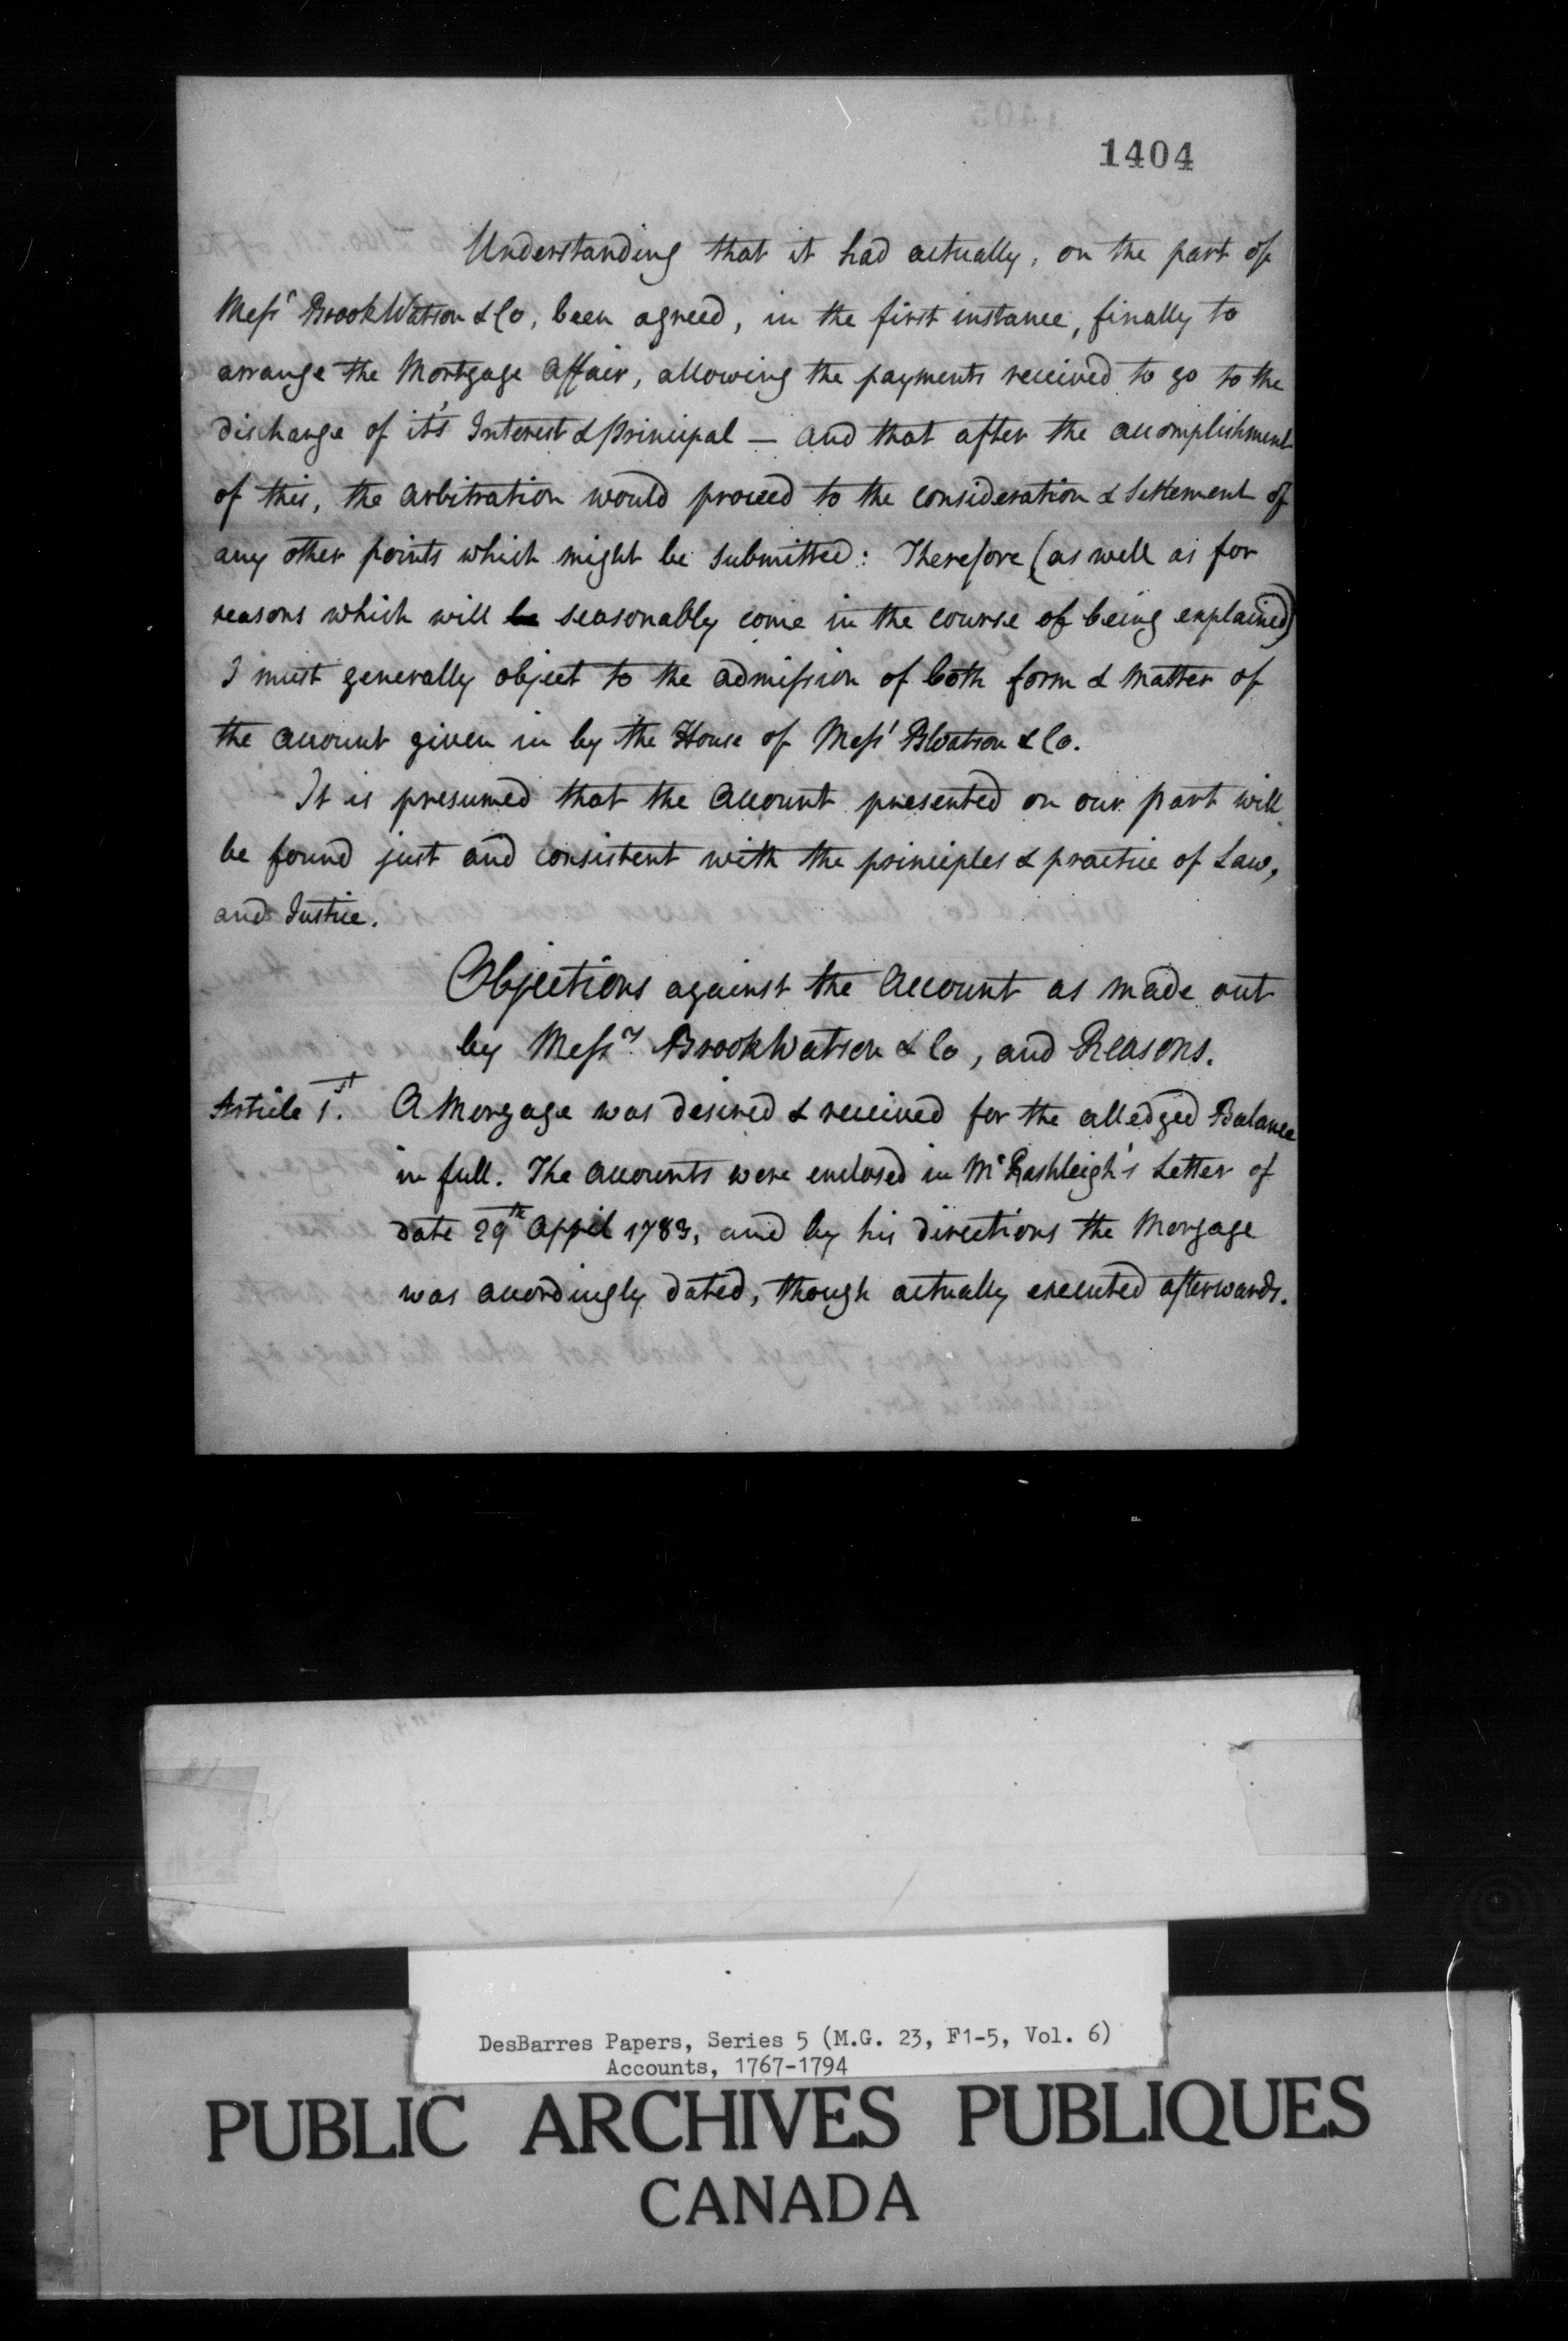 1404
Understanding that it had actually, on the part of
Messrs Brook Watson & Co, been agreed, in the first instance, finally to
arrange the Mortgage Affair, allowing the payments received to go to the
discharge of it's Interest & principal — and that after the accomplishment
of this, the arbitration would proceed to the consideration & Settlement of
any other points which might be submitted: Therefore (as well as for
reasons which will be seasonably come in the course of being explained)
I must generally object to the admission of both form & matter of
the account given in by the House of Messrs BWatson & Co.
It is presumed that the Account presented on our part will
be found just and consistent with the principles & practice of Law,
and Justice.
Objections against the Account as made out
by Messrs Brook Watson & Co, and Reasons.
Article 1st. A Morgage was desired & received for the alledged Balance
in full. The accounts were enclosed in Mr Rashleigh's Letter of
date 29th April 1783, and by his directions the Morgage
was accordingly dated, though actually executed afterwards.
DesBarres Papers, Series 5 (M.G. 23, F1-5, Vol. 6)
Accounts, 1767-1794
PUBLIC ARCHIVES PUBLIQUES
CANADA